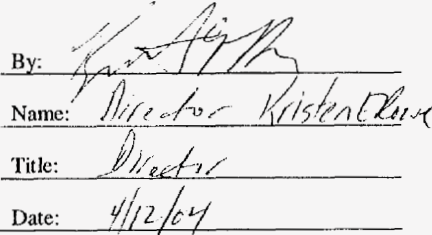 By:
Name: Director Kristen E Rowe
Title: Director
Date: 4/12/04